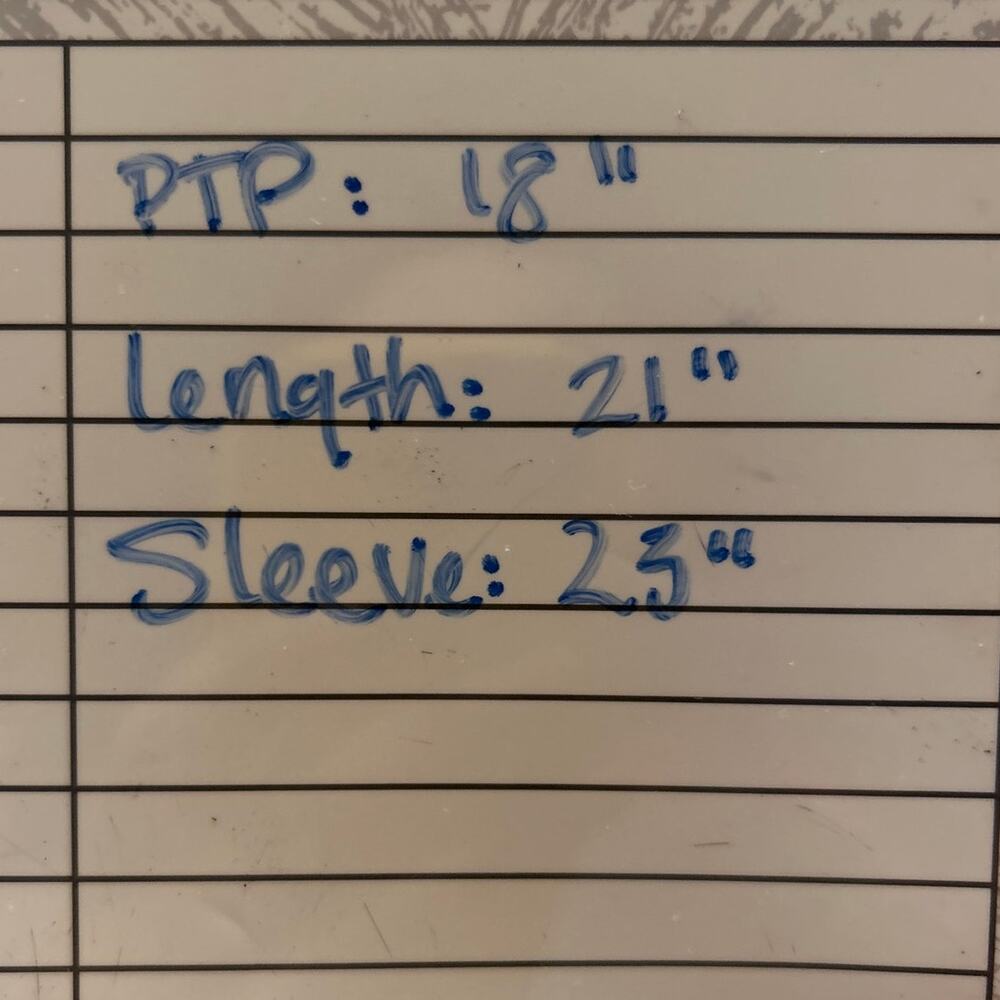 PTP: 18"
Length: 21"
Sleeve: 23"